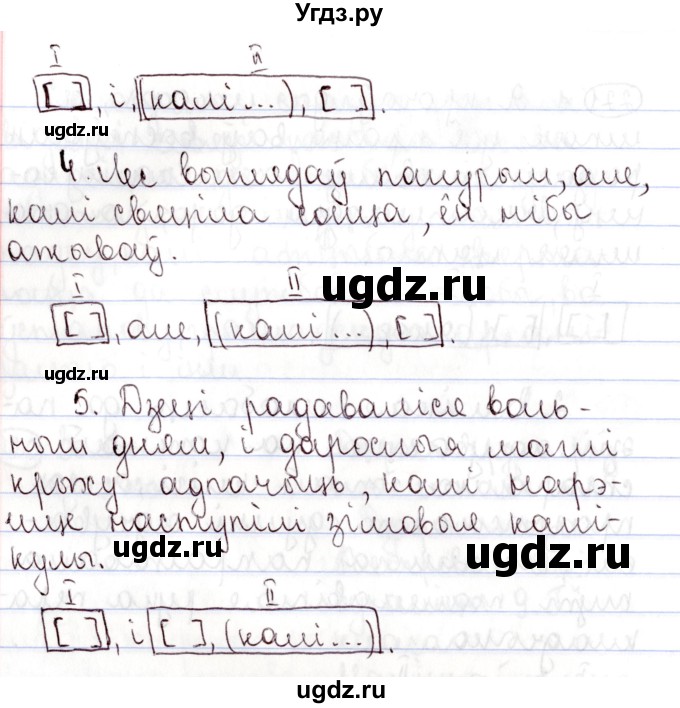 Угдз.ру
I II
[ ], і, (калі...), [ ].
ugdz.ru
4. Лес выглядаў панурым, але,
калі свяціла сонца, ён нібы
ажываў.
ugdz.ru
I II
[ ], але, (калі...), [ ].
ugdz.ru ugdz.ru
5. Дзеці радаваліся воль-
ным дням, і дарослыя маглі
крыху адпачыць, калі нарэ-
шце наступілі зімовыя калі-
кулы.
ugdz.ru ugdz.ru
I II
[ ], і [ ], (калі...).
ugdz.ru ugdz.ru
ugdz.ru